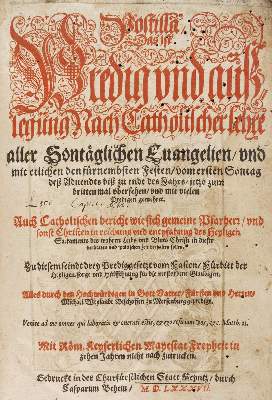 Postilla
Das ist
Predig vnd auß-
legung Nach Catholischer lehre
aller Sontäglichen Euangelien / vnd
mit etlichen den fürnembsten Festen / vom ersten Sontag
deß Aduendts biß zu ende des Jahrs / jetzo zum
drittenmal vbersehen / vnd mit vielen
Predigen gemehret.
Auch Catholischen bericht wie sich gemeine Pfarherr / vnd
sonst Christen in reichung vnd empfahung des Heyligen
Sacraments des waren Leibs vnd Bluts Christi in dieser
Zu diesem seindt drey Predigt gesetzt vom Fasten / Fürbitt der
Heiligen
Alles durch den Hochwürdigen in Gott Vatter / Fürsten vnd Herrn /
Michael Bischoffen zu Merseburg gepredigt.
Venite ad me omnes qui laboratis & onerati estis, & ego reficiam vos, Matth. 11.
Mit Röm. Keyserlichen Mayestat Freyheit in
zehen Jahren nicht nach zutrucken.
Gedruckt in der Churfürstlichen Statt Meyntz / durch
Casparum Behem /